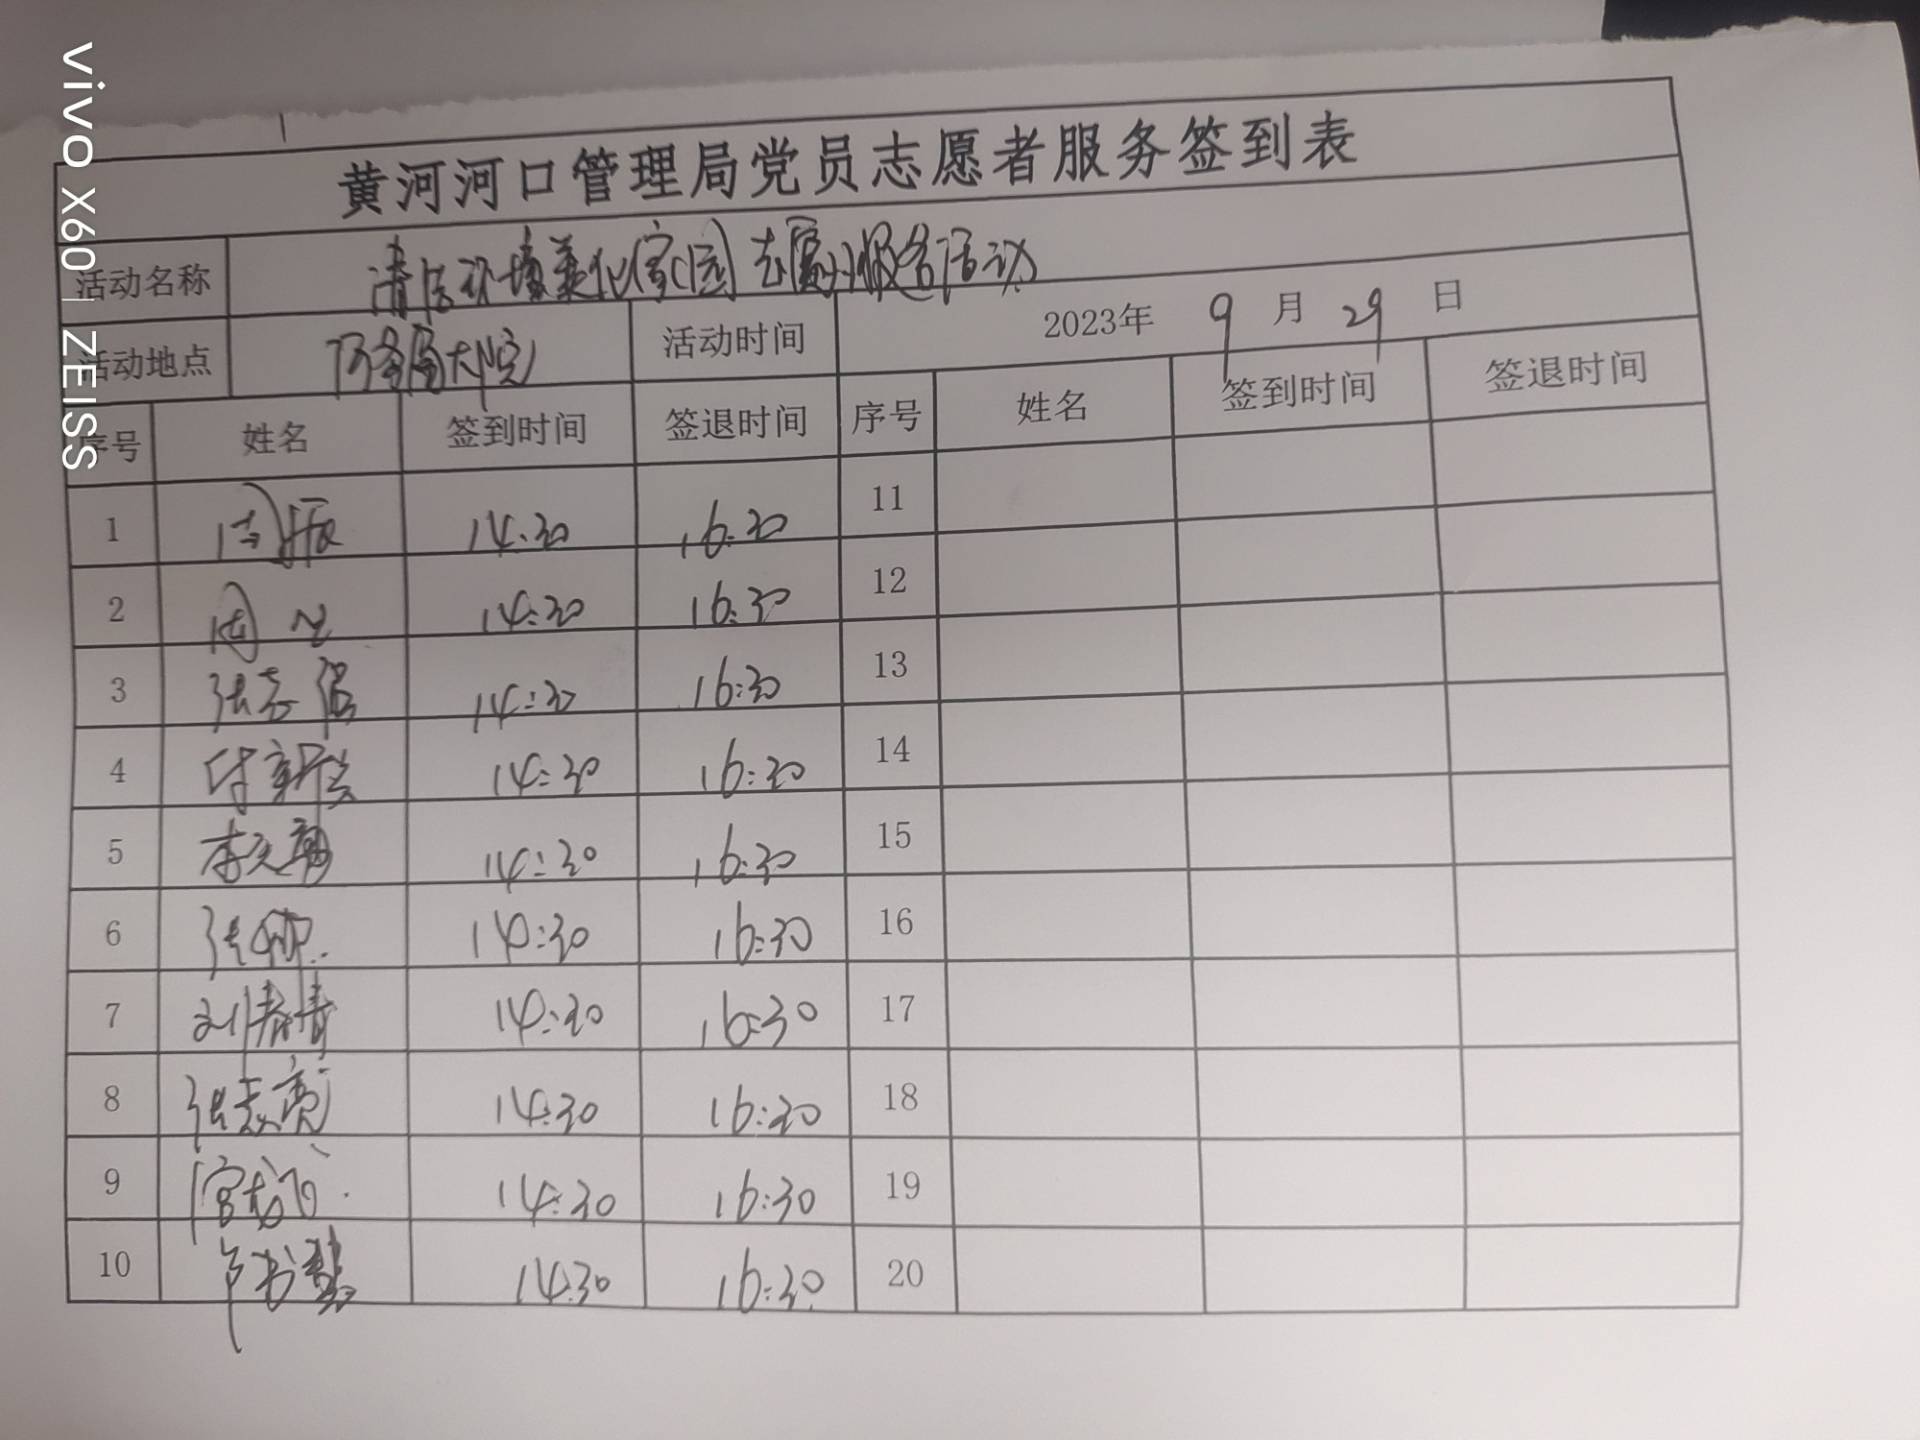 vivo X60 | ZEISS
黄河河口管理局党员志愿者服务签到表
活动名称 清洁环境美化家园志愿服务活动
活动地点 河务局大院 活动时间 2023年 9 月 29 日
序号 姓名 签到时间 签退时间 序号 姓名 签到时间 签退时间
1 周振 14:30 16:30 11
2 周 14:30 16:30 12
3 张志 14:30 16:30 13
4 付新 14:30 16:30 14
5 李文 14:30 16:30 15
6 张 14:30 16:30 16
7 刘春青 14:30 16:30 17
8 张志亮 14:30 16:30 18
9 14:30 16:30 19
10 14:30 16:30 20